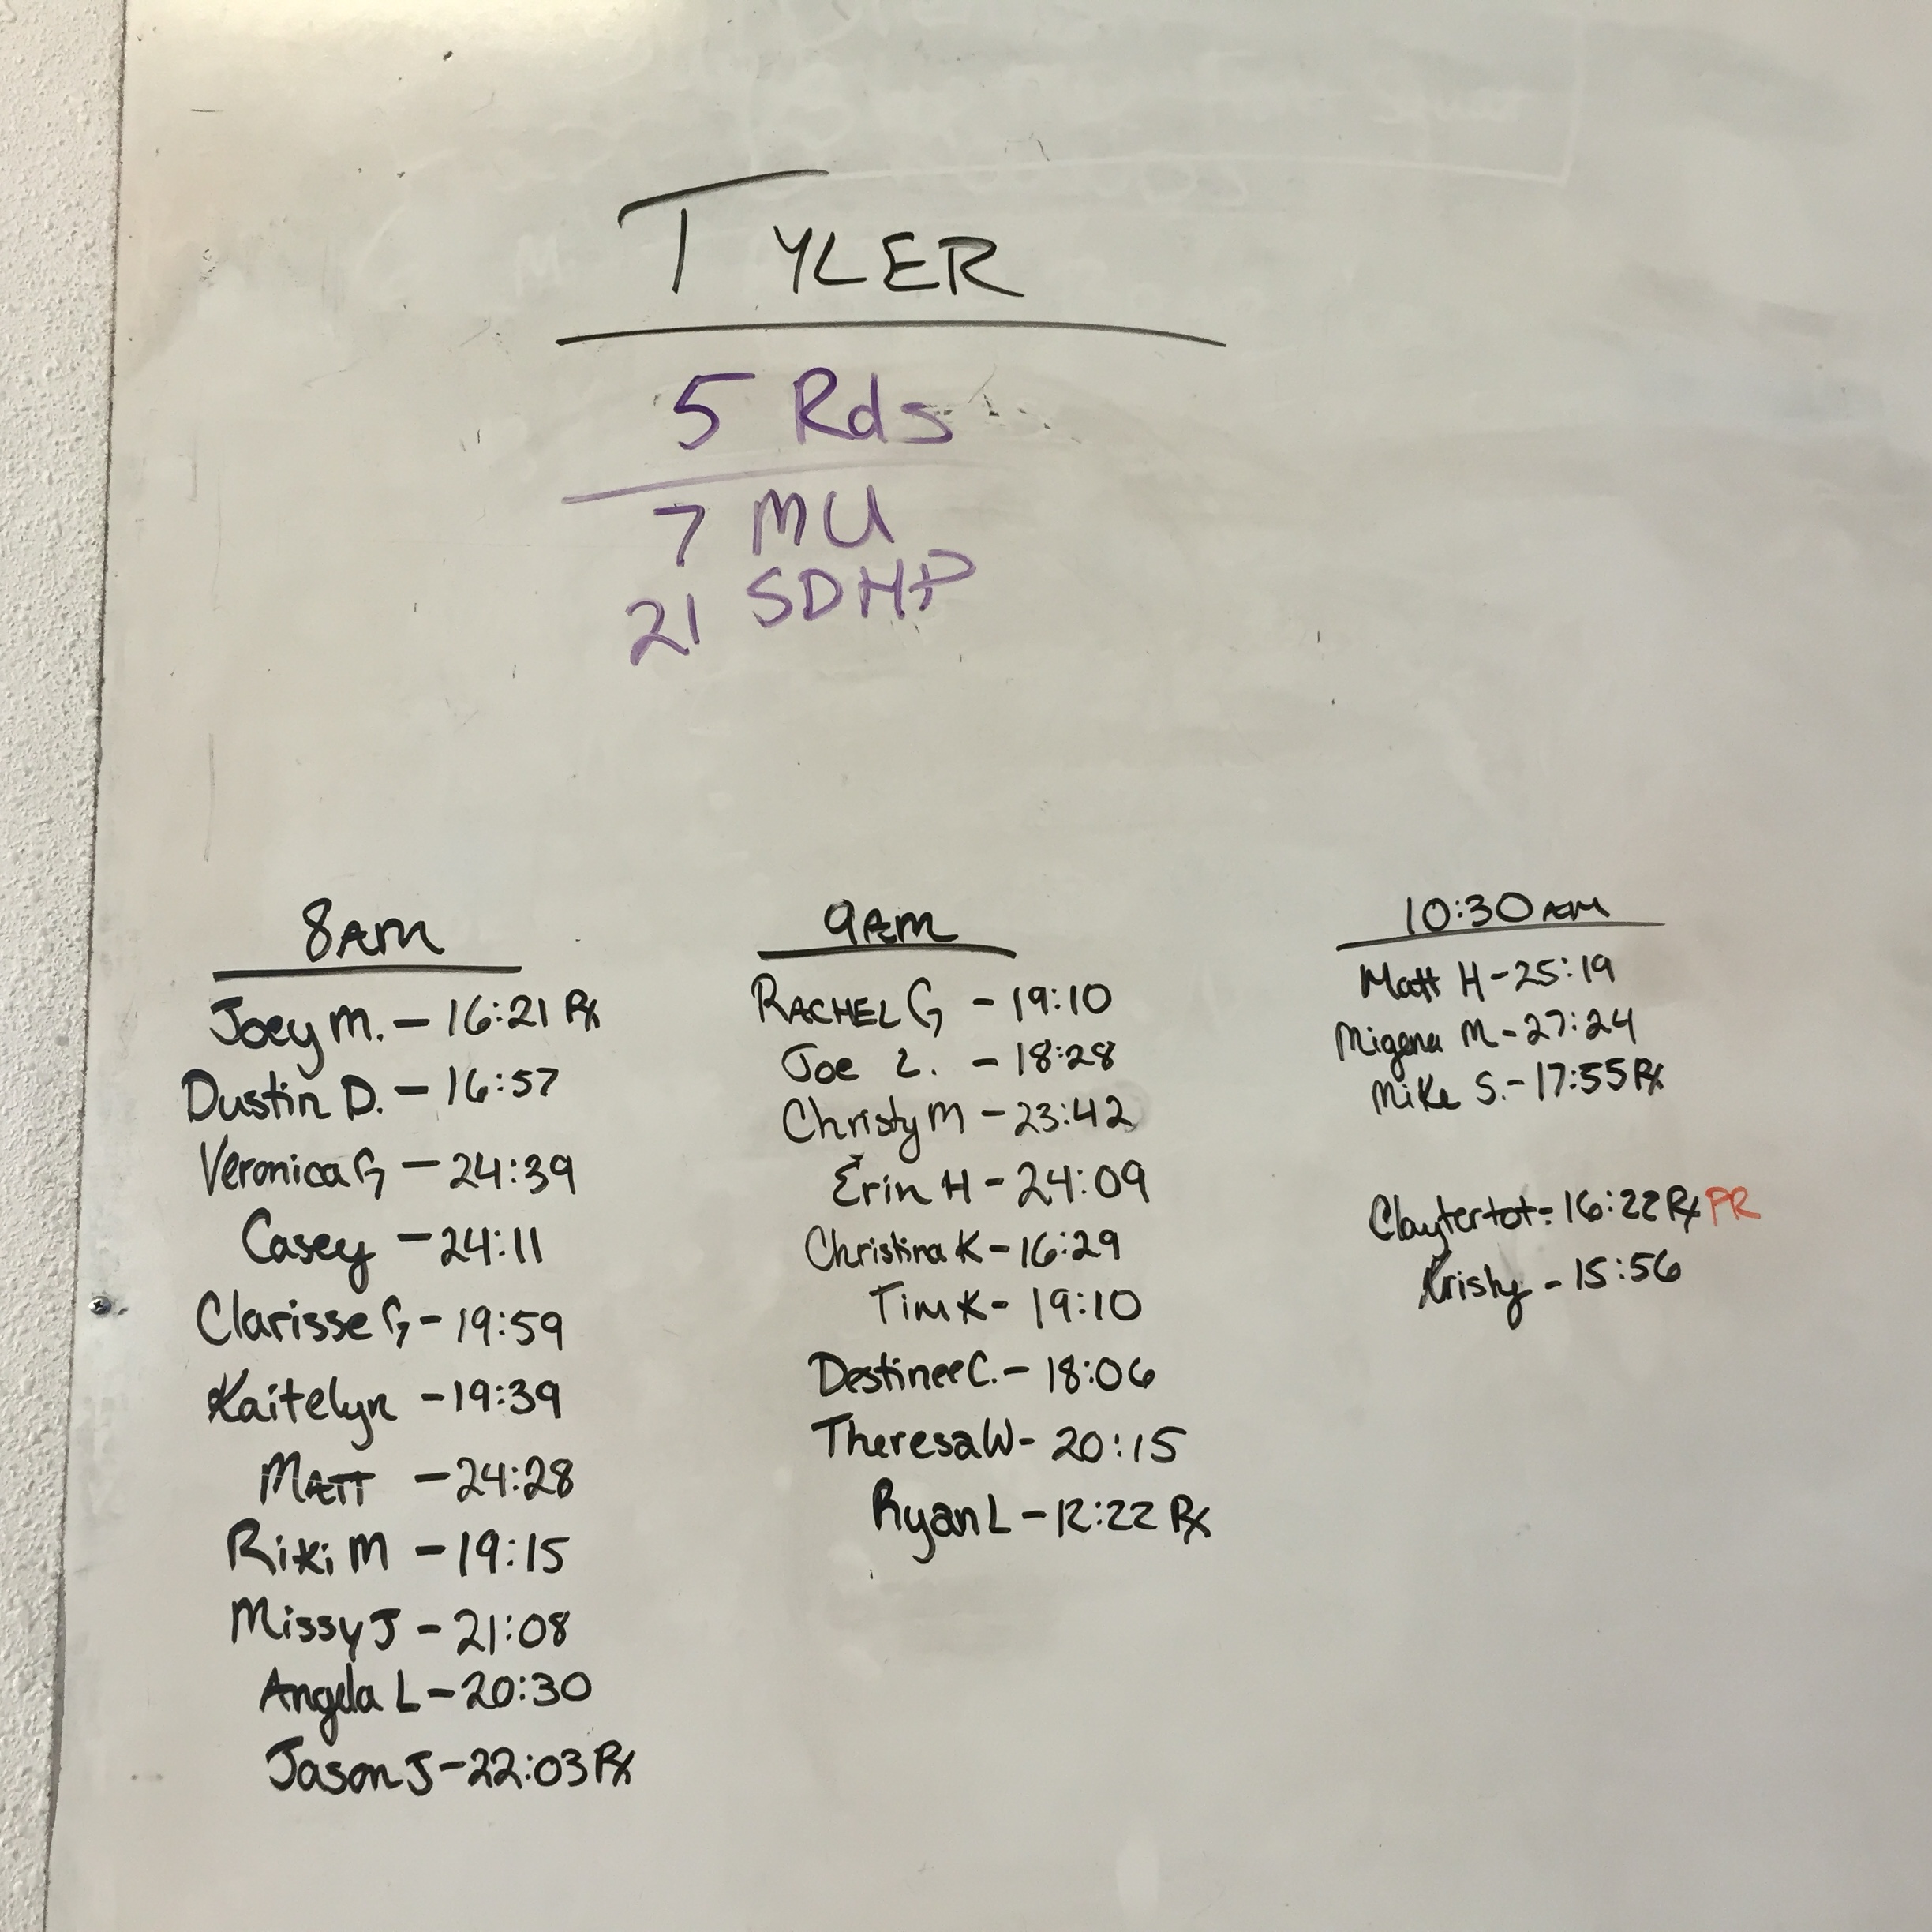 TYLER
5 Rds
7 MU
21 SDHP
8AM
Joey M. - 16:21 Rx
Dustin D. - 16:57
Veronica G - 24:39
Casey - 24:11
Clarisse G - 19:59
Kaitelyn - 19:39
MATT - 24:28
Riki M - 19:15
Missy J - 21:08
Angela L - 20:30
Jason J - 22:03 Rx
9AM
RACHEL G - 19:10
Joe Z. - 18:28
Christy M - 23:42
Erin H - 24:09
Christina K - 16:29
Tim K - 19:10
Destinee C. - 18:06
Theresa W - 20:15
Ryan L - 12:22 Rx
10:30 AM
Matt H - 25:19
Migena M - 27:24
Mike S. - 17:55 Rx
Claytertot - 16:22 Rx PR
Kristy - 15:56